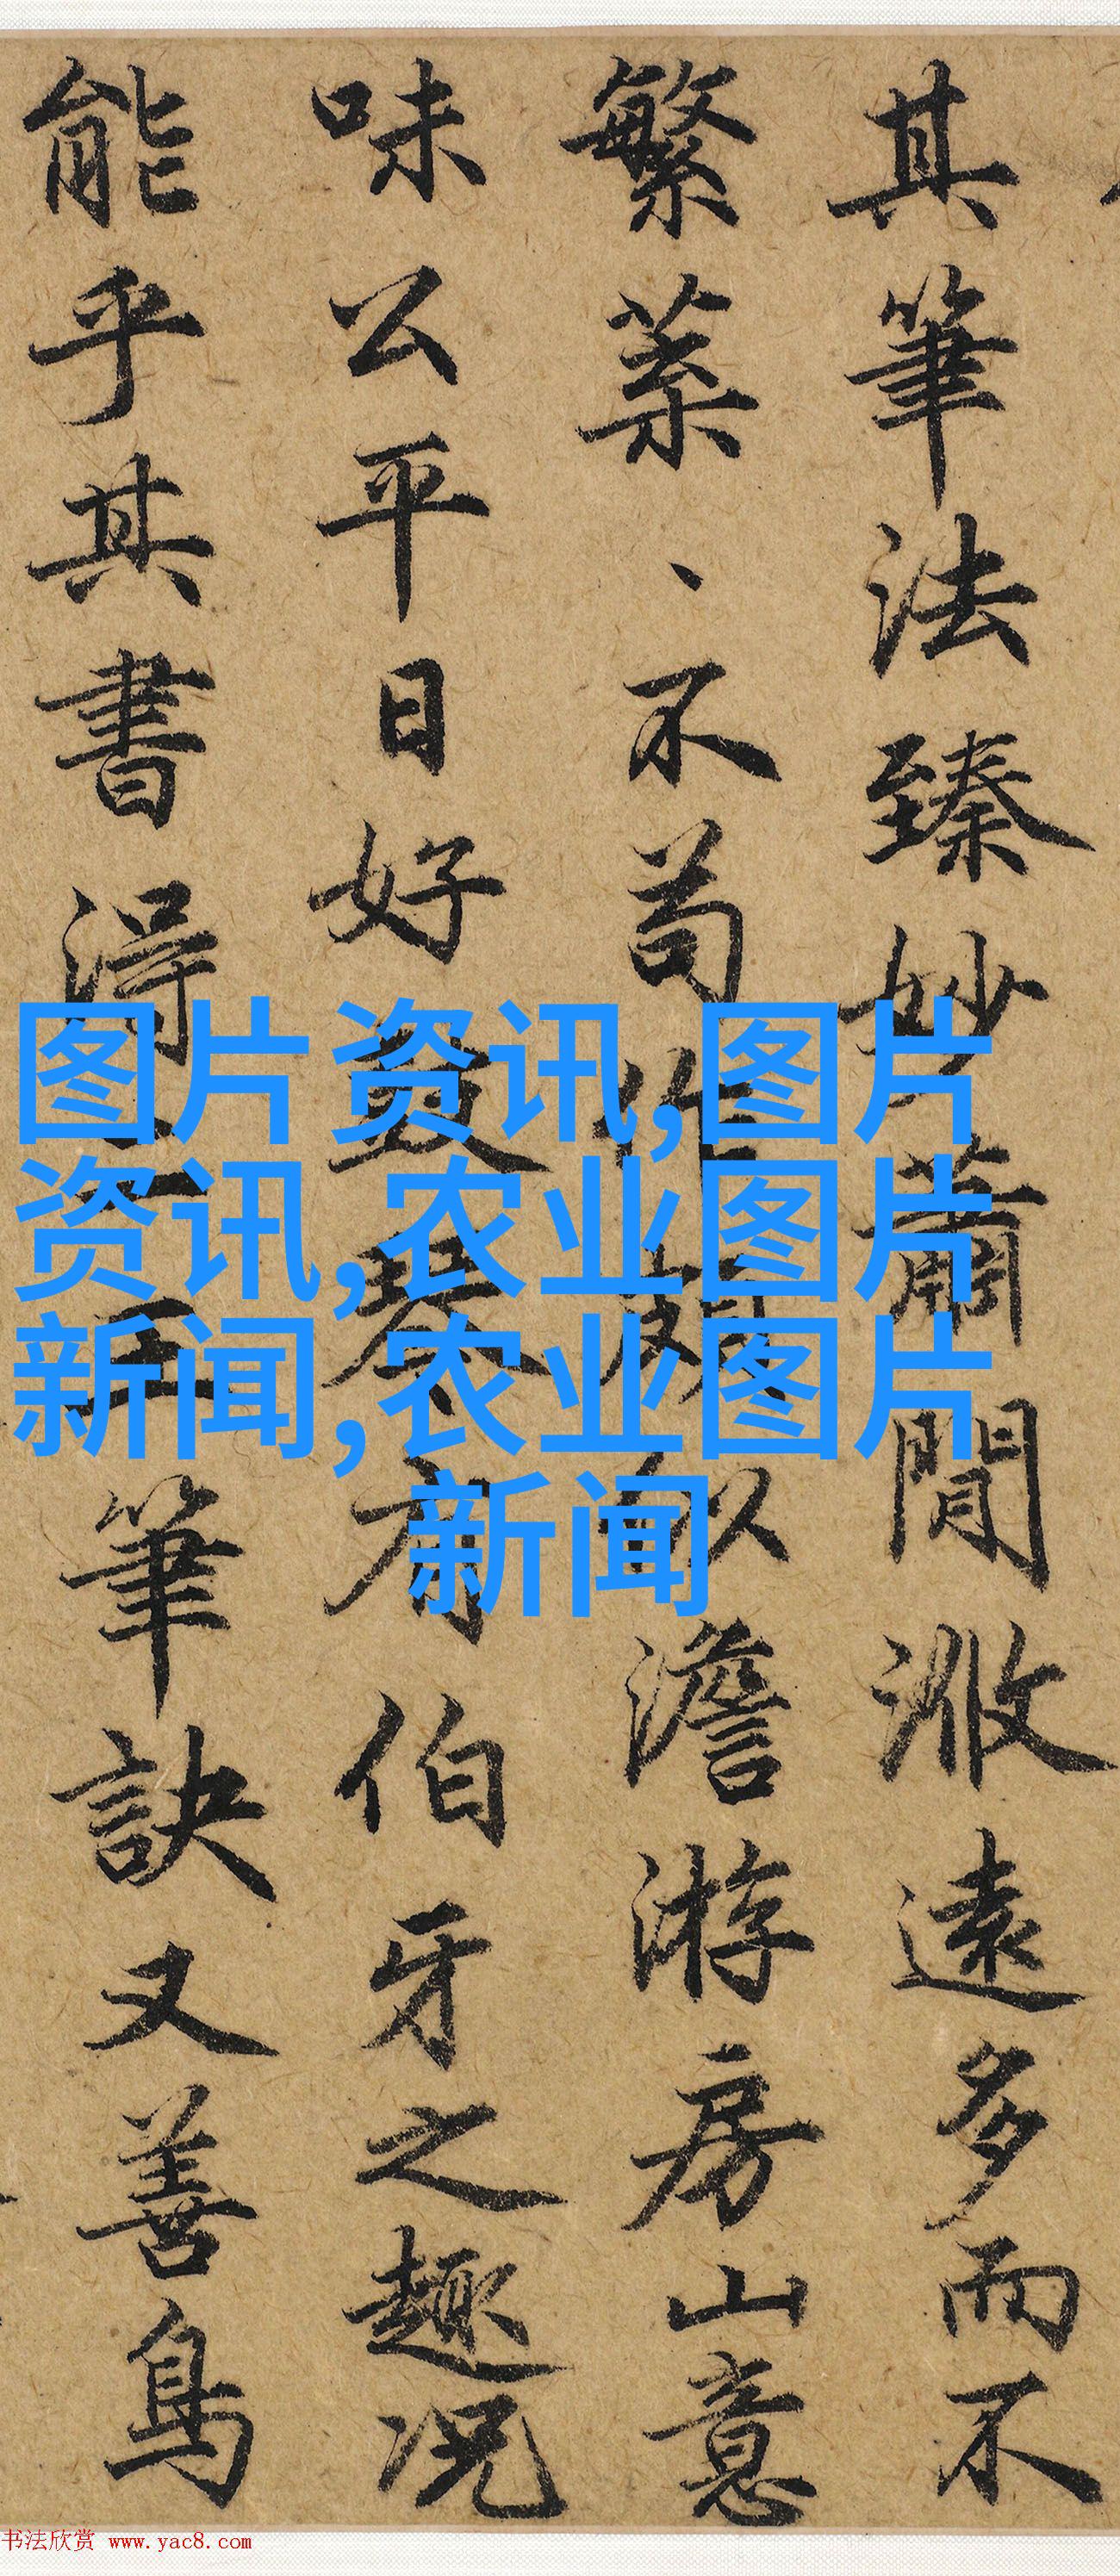 其筆法臻妙蕭閒遠多而不
繁不苟作頗似澹游房山意
味公平日好鼓琴有伯牙之趣况
能乎其書得二王筆訣又善鳥
图片资讯,图片
资讯,农业图片
新闻,农业图片
新闻
书法欣赏 www.yac8.com